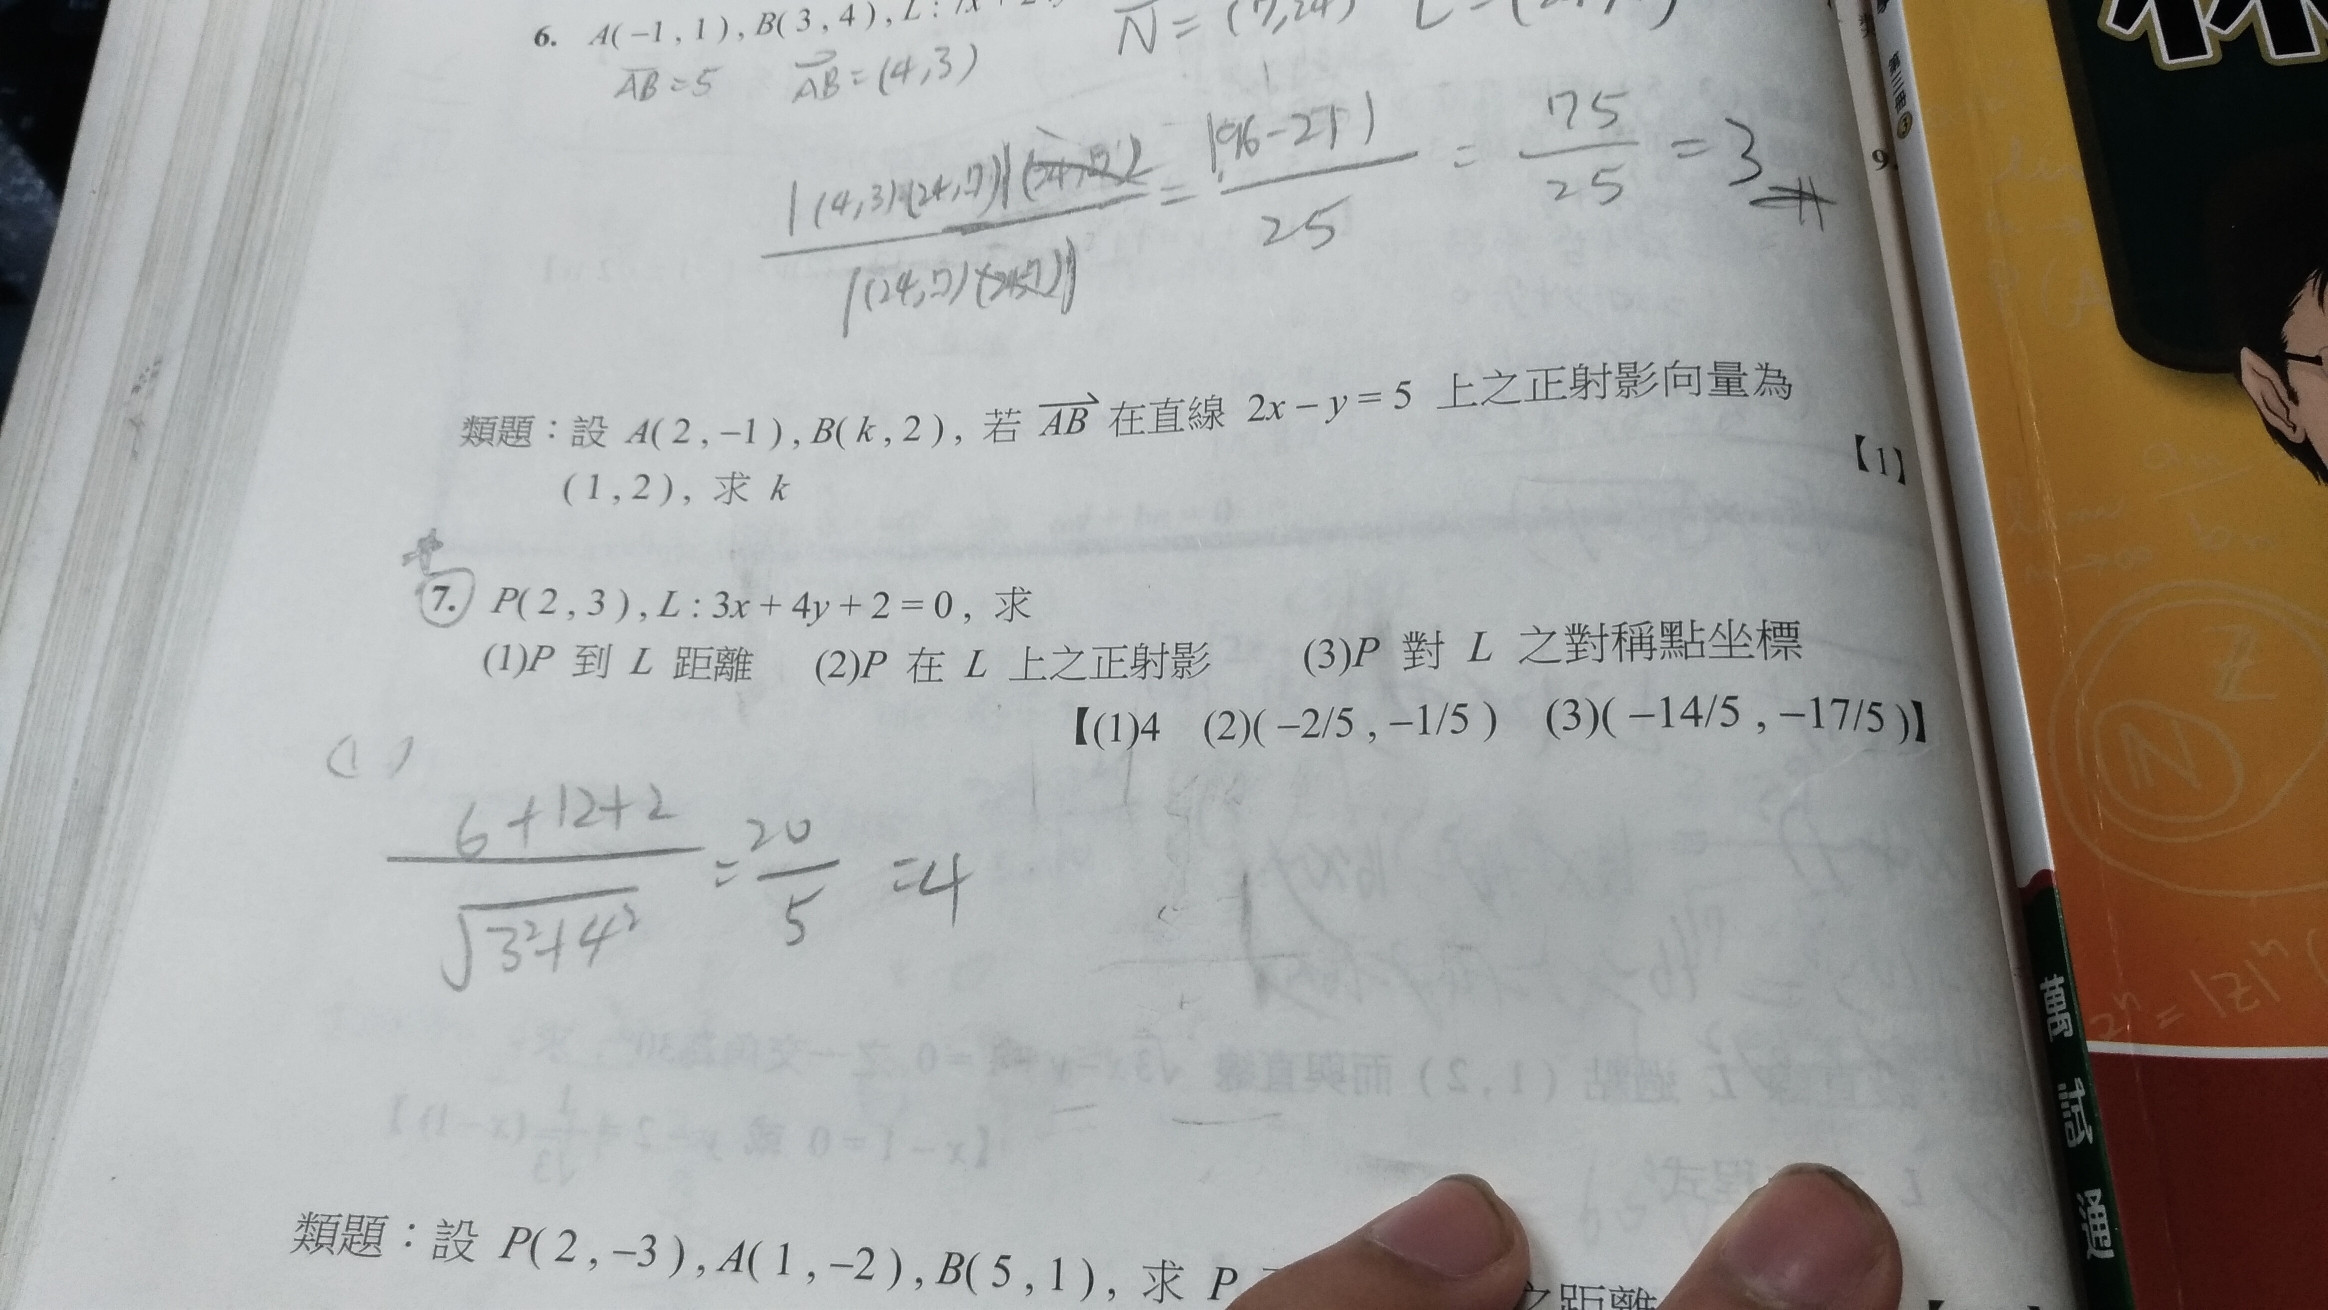 6. A(−1 , 1) , B(3 , 4) , L :
N = (7,24)
AB = 5 AB = (4,3)
|(4,3)(24,7)| = |96-21| = 75 = 3
|(24,7)| 25 25
類題：設 A( 2 , −1 ) , B( k , 2 ) , 若 AB 在直線 2x − y = 5 上之正射影向量為
( 1 , 2 ) , 求 k 【1】
7. P( 2 , 3 ) , L : 3x + 4y + 2 = 0 , 求
(1)P 到 L 距離 (2)P 在 L 上之正射影 (3)P 對 L 之對稱點坐標
【(1)4 (2)( −2/5 , −1/5 ) (3)( −14/5 , −17/5 )】
(1)
6+12+2 = 20 = 4
√3²+4² 5
類題：設 P( 2 , −3 ) , A( 1 , −2 ) , B( 5 , 1 ) , 求 P
之距離
9.
第三冊
萬試通